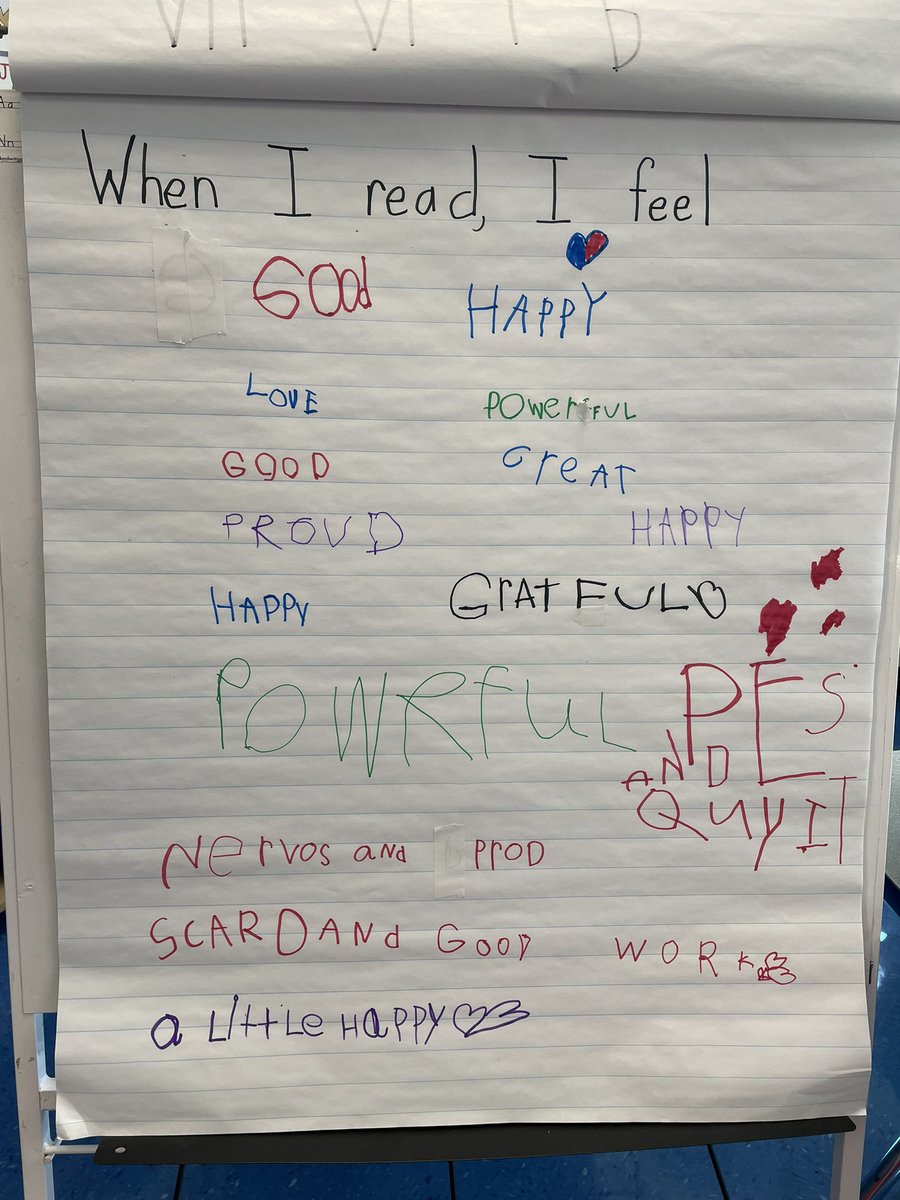 When I read, I feel
GOOd HAPPY
LOVE POwerfUL
GOOD GreAT
PROUD HAPPY
HAPPY GrATEFUL
POWRfUL PES
AND
QUYIT
Nervos aNd PrOD
SCARD ANd GOOD WORK
a LittLe HaPPY